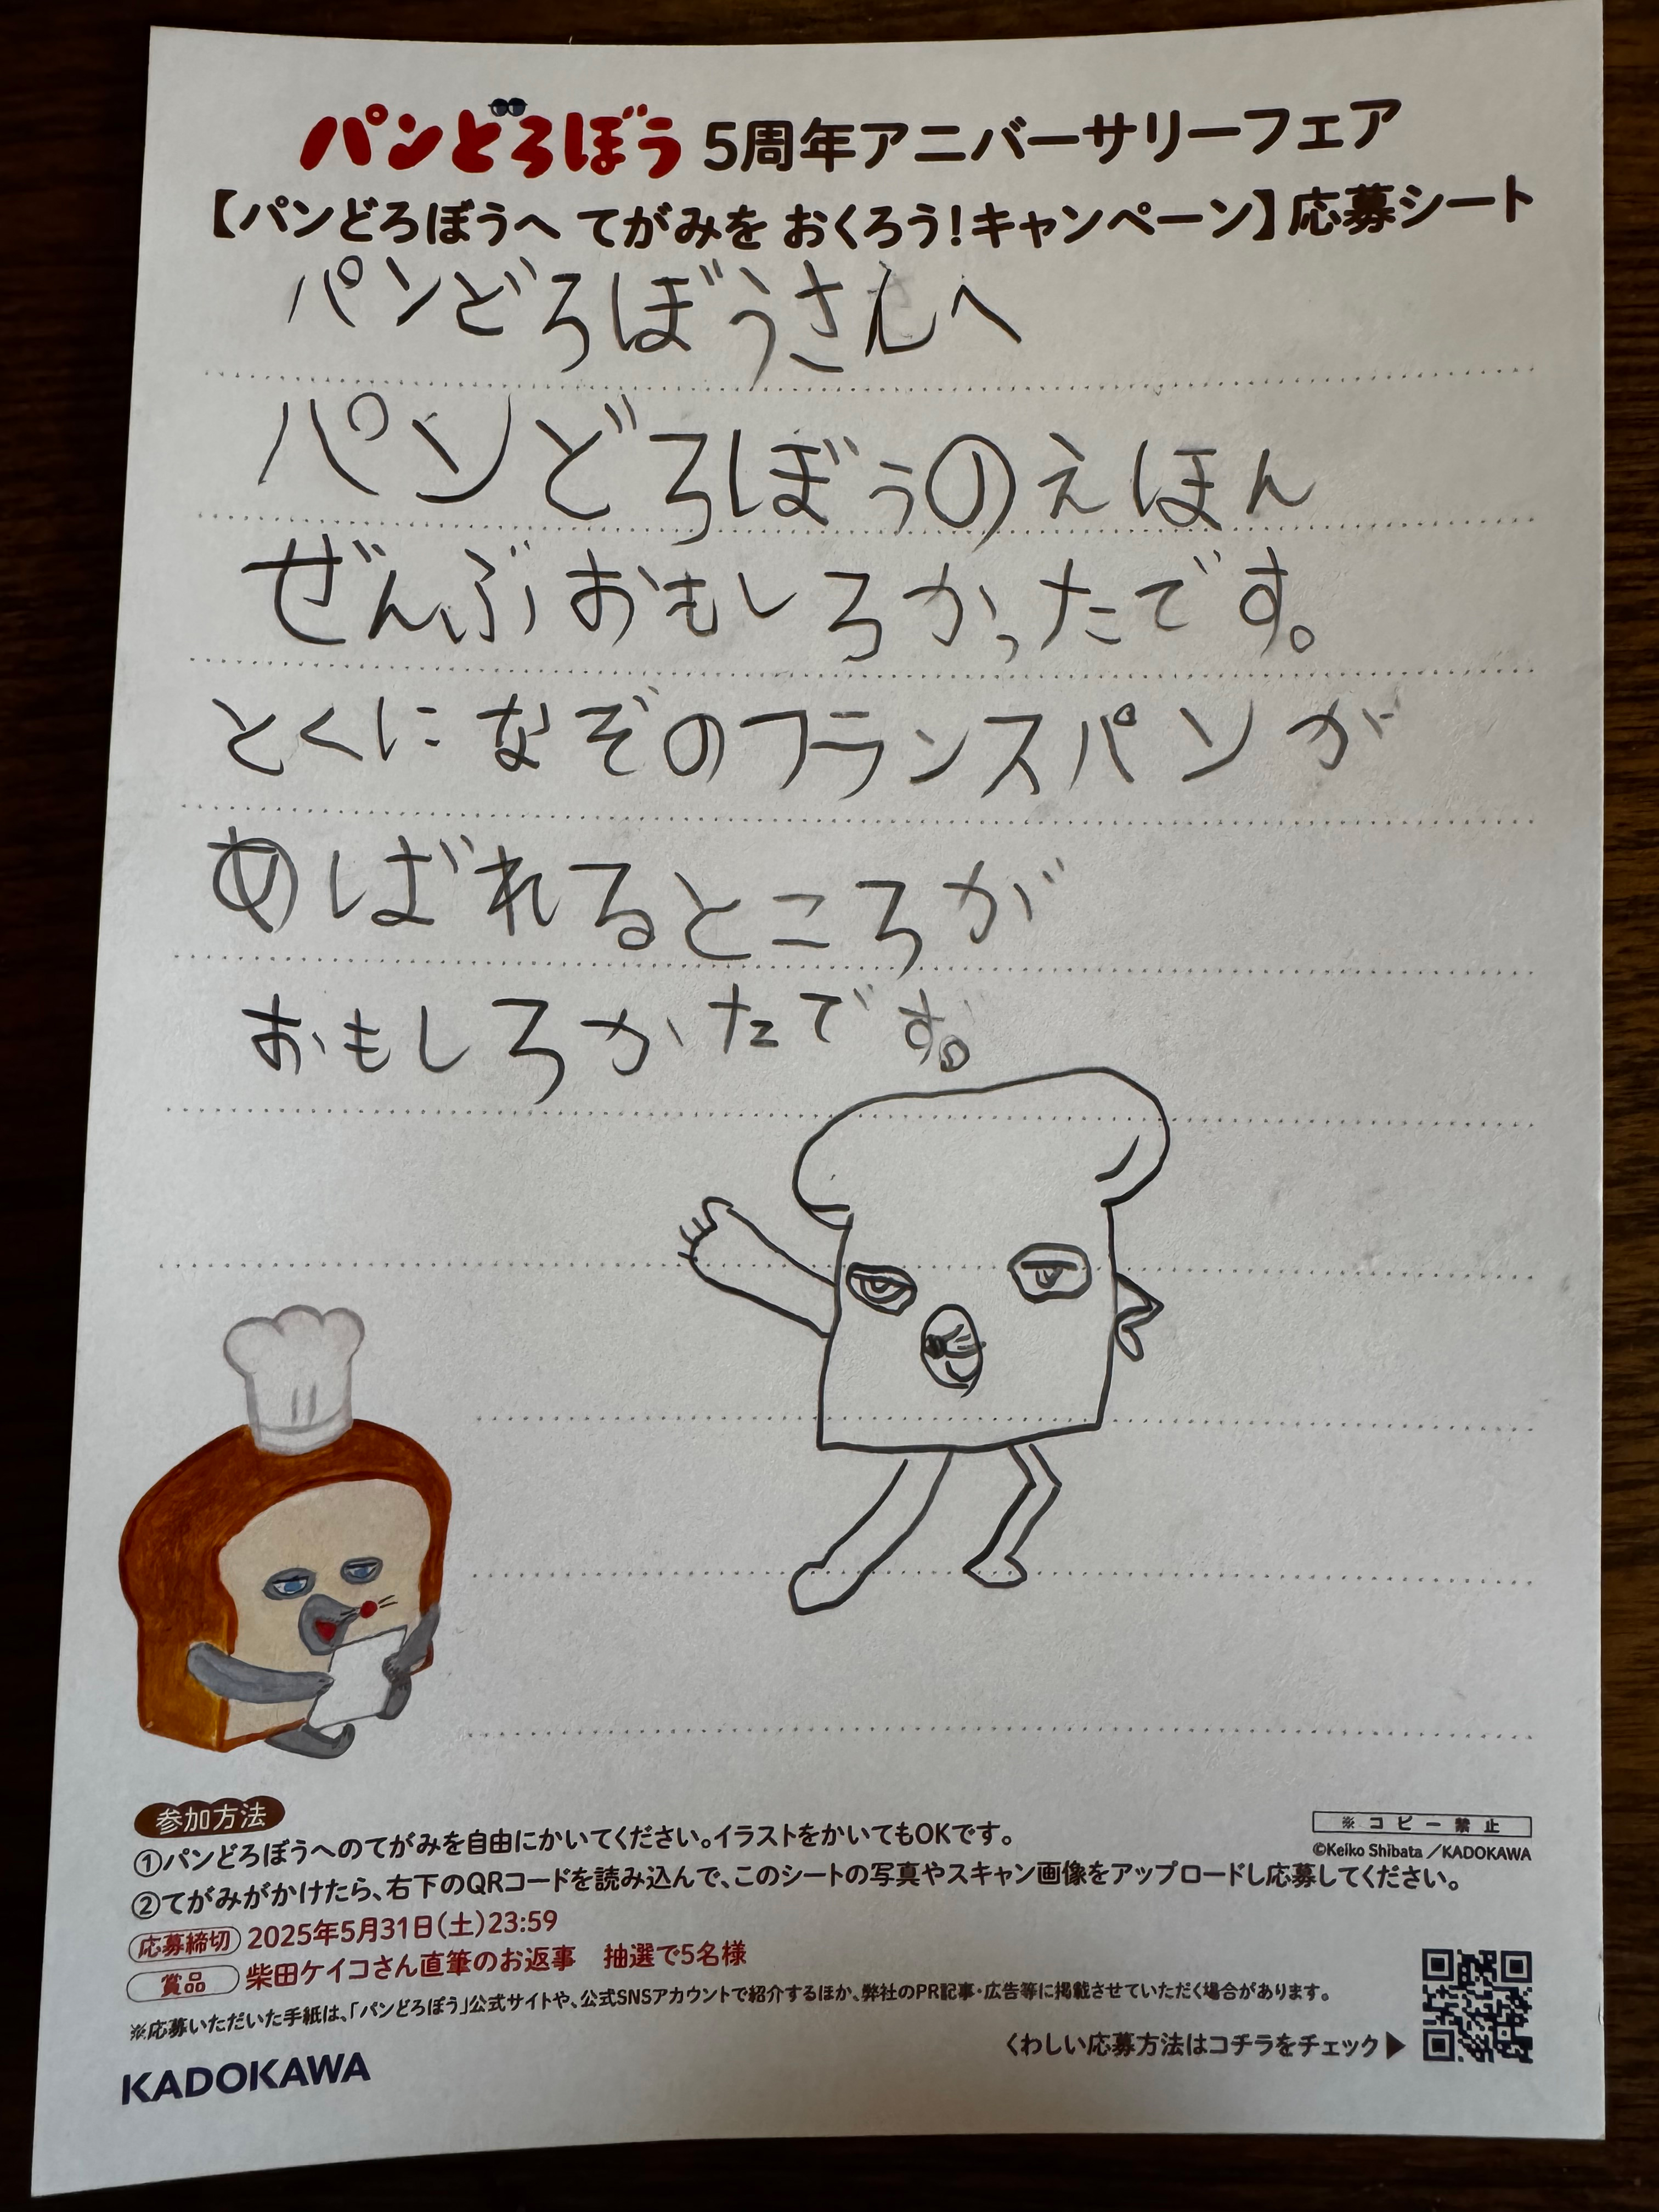 パンどろぼう 5周年アニバーサリーフェア
【パンどろぼうへ てがみを おくろう!キャンペーン】応募シート
パンどろぼうさんへ
パンどろぼうのえほん
ぜんぶおもしろかったです。
とくになぞのフランスパンが
あばれるところが
おもしろかたです。
参加方法
①パンどろぼうへのてがみを自由にかいてください。イラストをかいてもOKです。
※コピー禁止
©Keiko Shibata/KADOKAWA
②てがみがかけたら、右下のQRコードを読み込んで、このシートの写真やスキャン画像をアップロードし応募してください。
応募締切 2025年5月31日(土)23:59
賞品 柴田ケイコさん直筆のお返事 抽選で5名様
※応募いただいた手紙は、「パンどろぼう」公式サイトや、公式SNSアカウントで紹介するほか、弊社のPR記事・広告等に掲載させていただく場合があります。
くわしい応募方法はコチラをチェック▶
KADOKAWA